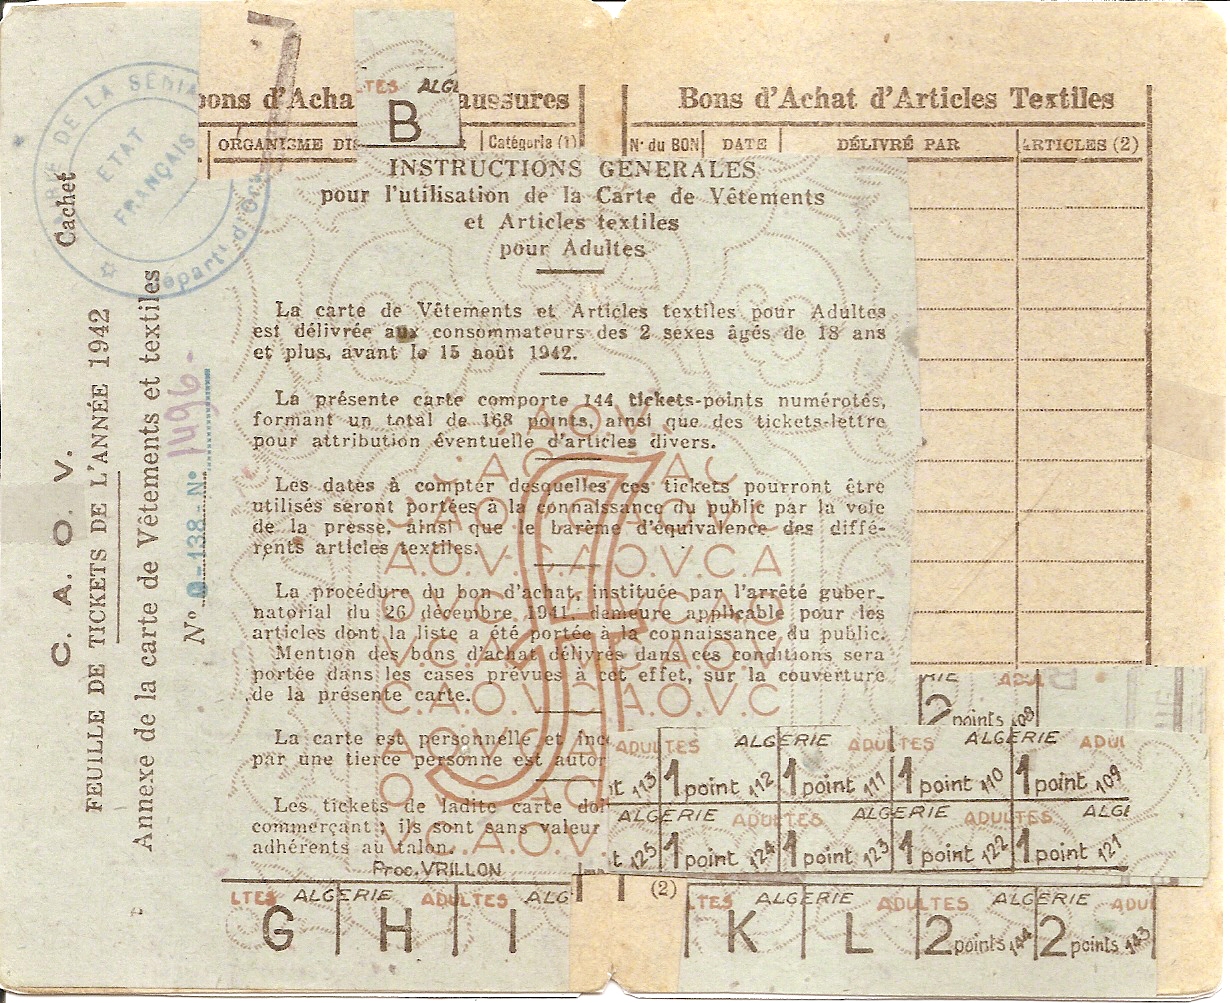 Bons d'Acha
aussures
Bons d'Achat d'Articles Textiles
ORGANISME DIS
Catégorie (1)
N° du BON
DATE
DÉLIVRÉ PAR
ARTICLES (2)
LTES ALGE
B
DE LA SENIA
ETAT
FRANÇAIS
Départt d'Oran
Cachet
C. A. O. V.
FEUILLE DE TICKETS DE L'ANNÉE 1942
Annexe de la carte de Vêtements et textiles
N° 0-138-N° 1496-
INSTRUCTIONS GENERALES
pour l'utilisation de la Carte de Vêtements
et Articles textiles
pour Adultes
La carte de Vêtements et Articles textiles pour Adultes
est délivrée aux consommateurs des 2 sexes âgés de 18 ans
et plus, avant le 15 août 1942.
La présente carte comporte 144 tickets-points numérotés,
formant un total de 168 points, ainsi que des tickets-lettre
pour attribution éventuelle d'articles divers.
Les dates à compter desquelles ces tickets pourront être
utilisés seront portées à la connaissance du public par la voie
de la presse, ainsi que le barème d'équivalence des diffé-
rents articles textiles.
La procédure du bon d'achat, instituée par l'arrêté guber-
natorial du 26 décembre 1941, demeure applicable pour les
articles dont la liste a été portée à la connaissance du public.
Mention des bons d'achat délivrés dans ces conditions sera
portée dans les cases prévues à cet effet, sur la couverture
de la présente carte.
La carte est personnelle et inc
par une tierce personne est autor
Les tickets de ladite carte doi
commerçant ; ils sont sans valeur
adhérents au talon.
Proc. VRILLON
RIE ADUL
2 points 108
ADULTES ALGERIE ADULTES ALGERIE ADUL
t 113 1 point 112 1 point 111 1 point 110 1 point 109
ALGERIE ADULTES ALGERIE ADULTES ALGE
t 125 1 point 124 1 point 123 1 point 122 1 point 121
(2)
LTES ALGERIE ADULTES ALG
G H I
LTES ALGERIE ADULTES ALGERIE ADUL
K L 2 points 144 2 points 143